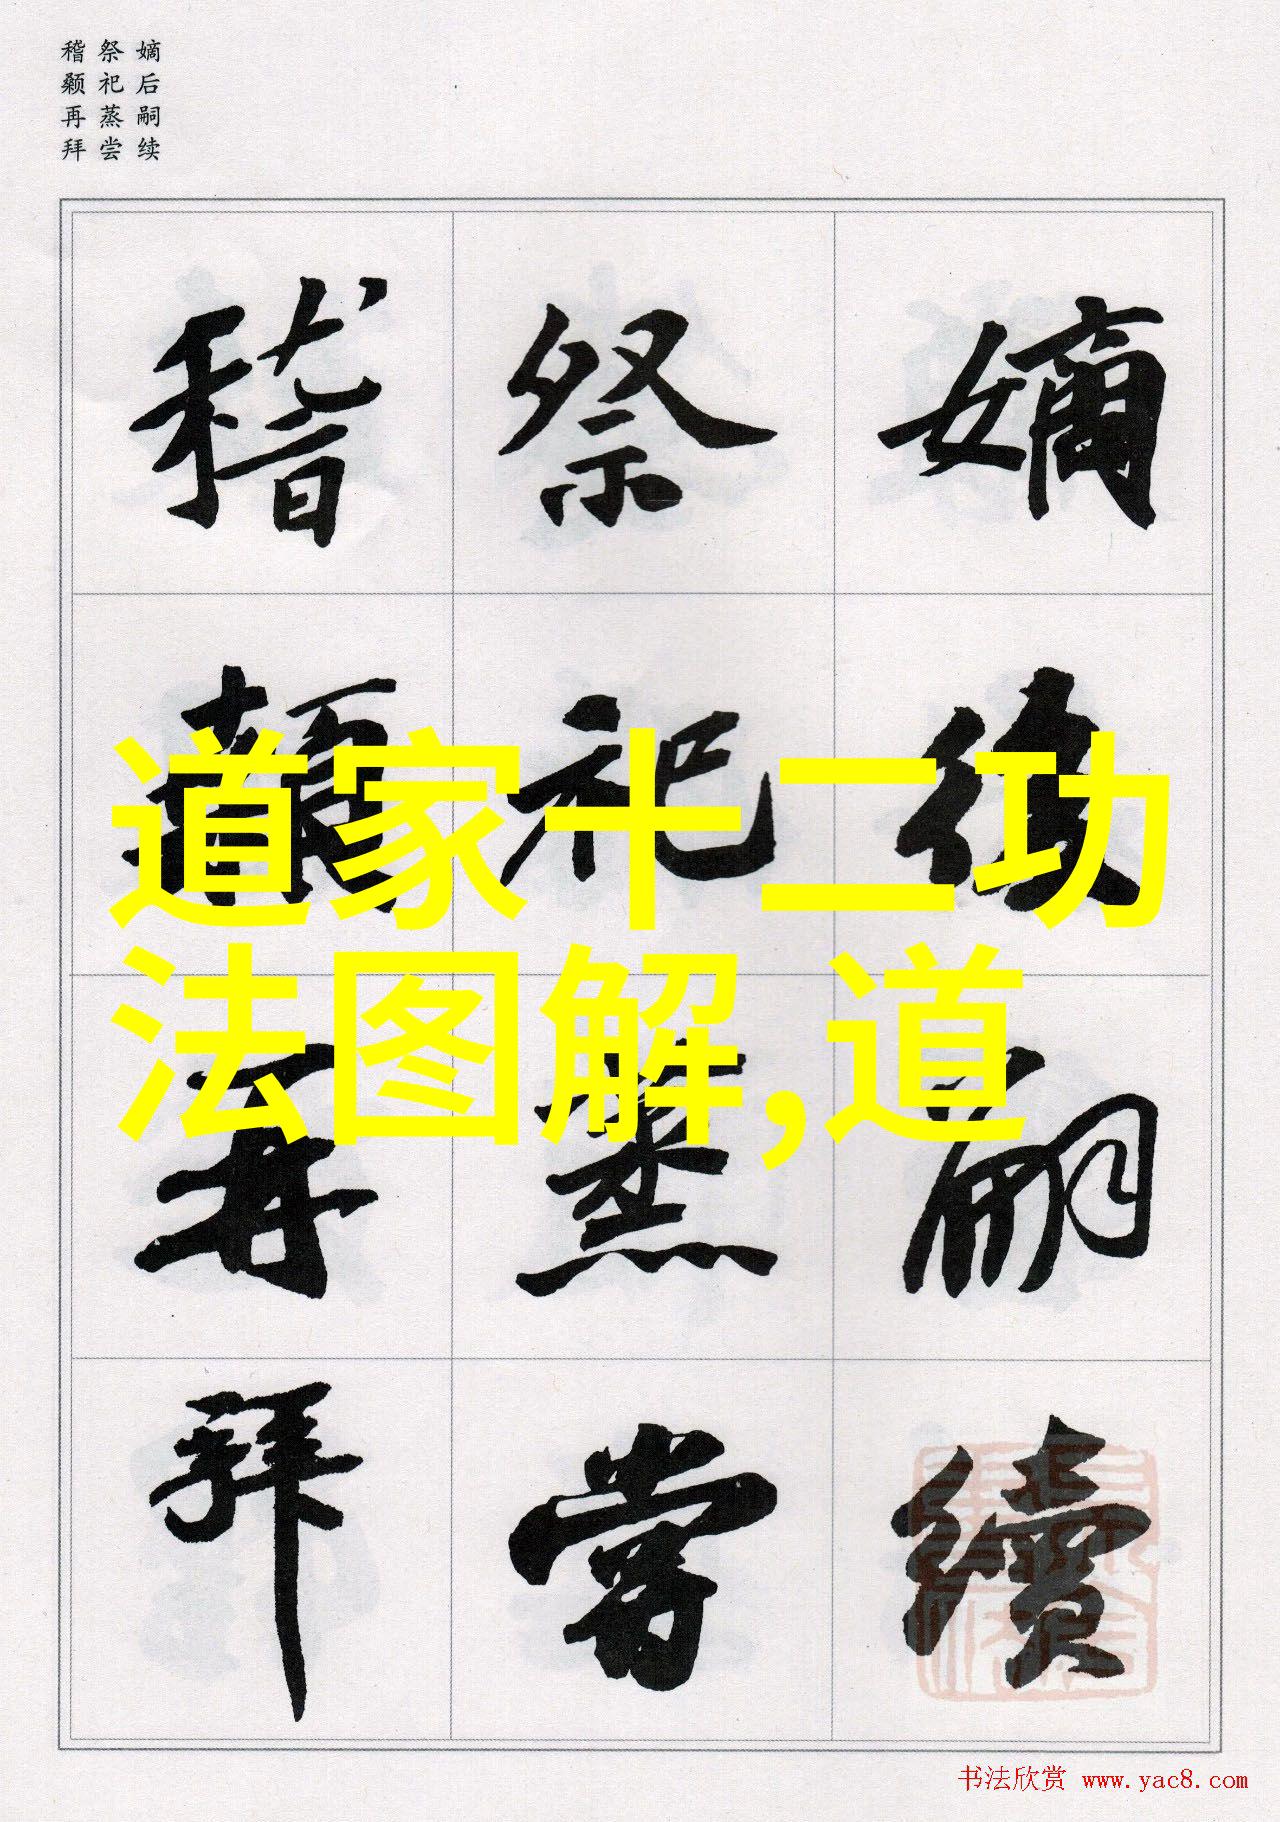 嫡后嗣续
祭祀蒸尝
稽颡再拜
嫡後嗣續
祭祀蒸嘗
稽顙再拜
道家十二功
法图解,道
书法欣赏 www.yac8.com